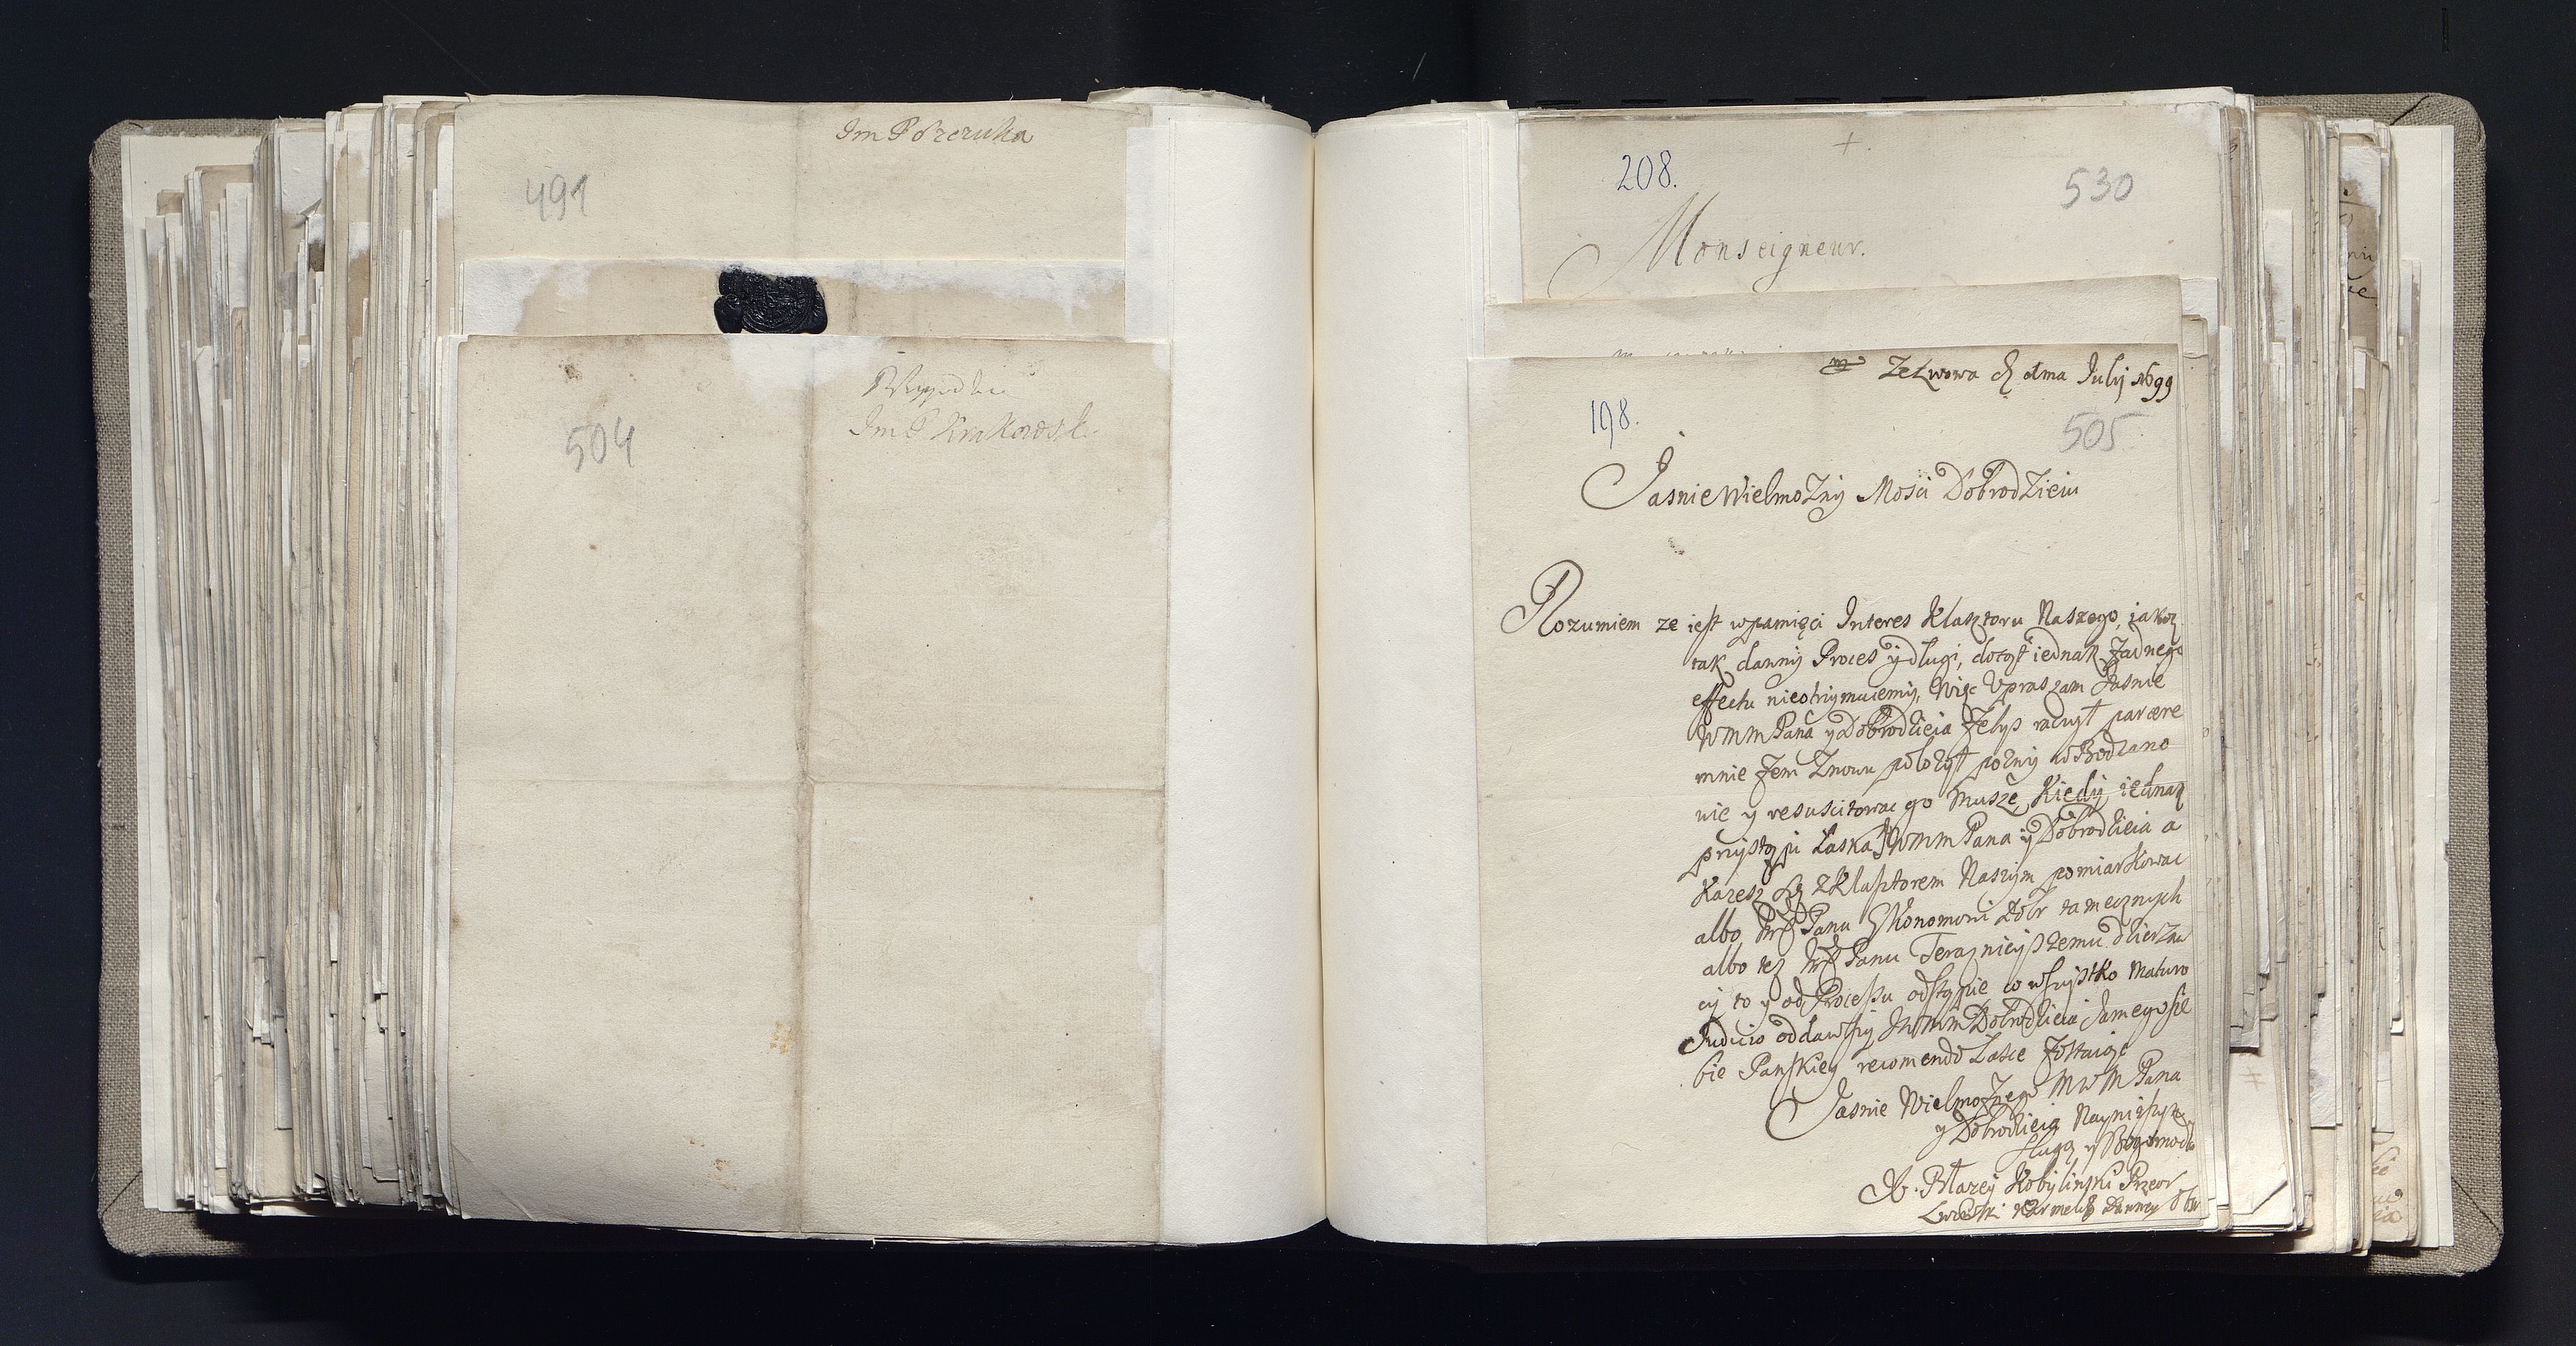 491
504
Im P Krakowsk
208.
530
+
Monseigneur.
Ze Lwowa d July 1699
198.
505
Jasnie Wielmozny Mosci Dobrodzieiu
Rozumiem ze iest wpamięci Interes Klasztoru Naszego, iakoz
tak dawny Proces y dlugi, dotąt iednak zadnego
effectu nieotrzymuiemy, Więc Upraszam Jasnie
WMM Pana y Dobrodzieia zebys raczył parcere
mnie zem znowu połozył pozny w Bodzano
wie y resuscitowac go Musze, Kiedy iednak
przystąpi Łaska JWMM Pana y Dobrodzieia a
Kazesz się z Klasztorem Naszym pomiarkowac
albo Panu Ekonomowi dobr tamecznych
albo tez Panu Teraznieyszemu dzierzaw
cy to y od Processu odstąpie co wszystko Maturo
Judicio oddawszy JWMM Dobrodzieia samego sie
bie Panskiey recomendo Łasce zostaiąc
Jasnie Wielmoznego MWM Pana
y Dobrodzieia Nayniszszym
sługą y Bogomodlcą
X. Błazey Kobylinski Przeor
Lwowski